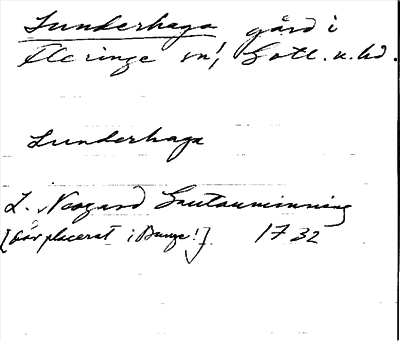 Sunderhaga gård i
Fleringe sn, Gotl. n. hd.
Sunderhaga
L. Neogard Gautauminning
[här placerat i Bunge!] 1732